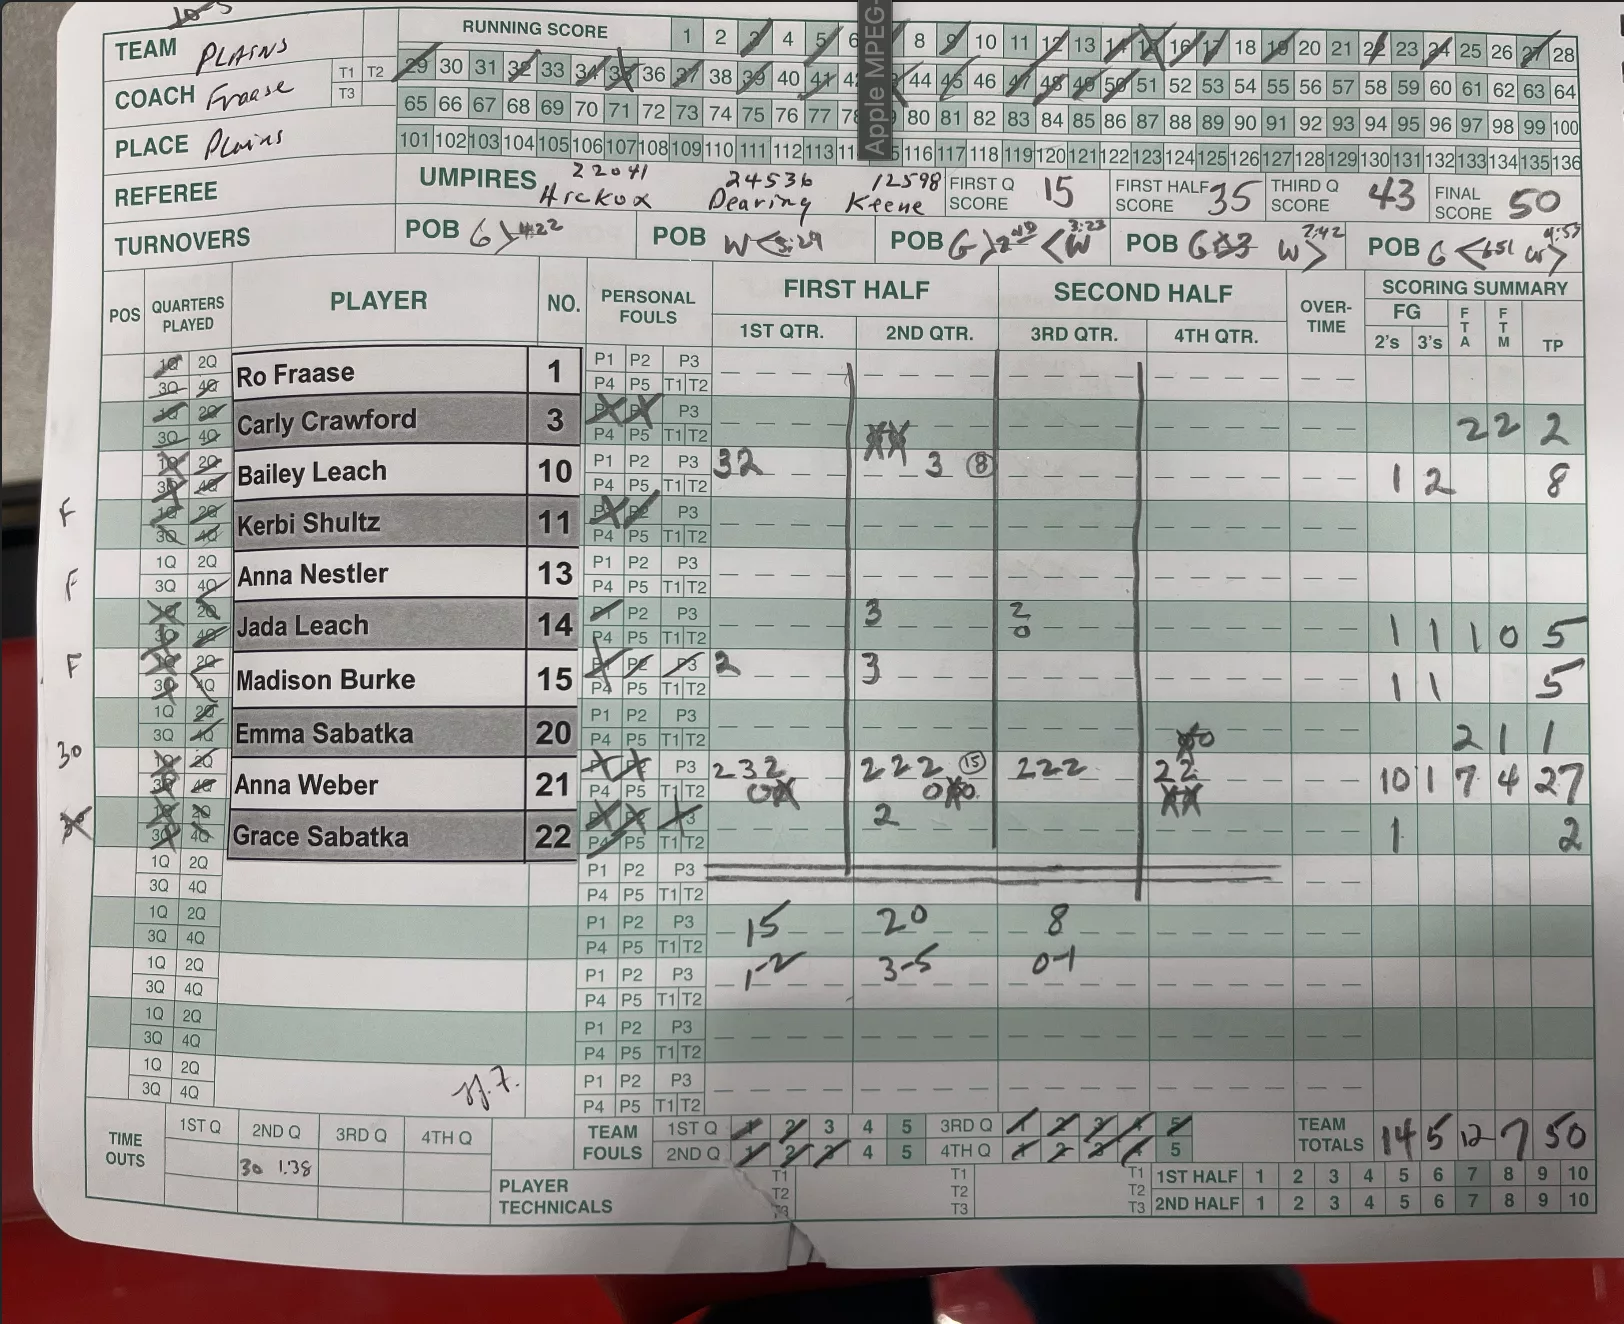 10-5
TEAM PLAINS RUNNING SCORE 1 2 3 4 5 6 8 9 10 11 12 13 14 15 16 17 18 19 20 21 22 23 24 25 26 27 28
T1 T2 29 30 31 32 33 34 35 36 37 38 39 40 41 42 44 45 46 47 48 49 50 51 52 53 54 55 56 57 58 59 60 61 62 63 64
COACH Fraase T3 65 66 67 68 69 70 71 72 73 74 75 76 77 78 80 81 82 83 84 85 86 87 88 89 90 91 92 93 94 95 96 97 98 99 100
PLACE Plains 101 102 103 104 105 106 107 108 109 110 111 112 113 116 117 118 119 120 121 122 123 124 125 126 127 128 129 130 131 132 133 134 135 136
Apple MPEG-
REFEREE UMPIRES 22041 Hickox 24536 Dearing 12598 Keene FIRST Q SCORE 15 FIRST HALF SCORE 35 THIRD Q SCORE 43 FINAL SCORE 50
TURNOVERS POB G > #22 POB W < 5:29 POB G > 2ND < W 3:23 POB G W > 7:42 POB G < W >
POS QUARTERS PLAYED PLAYER NO. PERSONAL FOULS FIRST HALF SECOND HALF OVER-TIME SCORING SUMMARY
1ST QTR. 2ND QTR. 3RD QTR. 4TH QTR. FG 2's 3's FTA FTM TP
1Q 2Q 3Q 4Q Ro Fraase 1 P1 P2 P3 P4 P5 T1 T2
1Q 2Q 3Q 4Q Carly Crawford 3 P1 P2 P3 P4 P5 T1 T2 2 2 2
1Q 2Q 3Q 4Q Bailey Leach 10 P1 P2 P3 P4 P5 T1 T2 3 2 3 8 1 2 8
F 1Q 2Q 3Q 4Q Kerbi Shultz 11 P1 P2 P3 P4 P5 T1 T2
F 1Q 2Q 3Q 4Q Anna Nestler 13 P1 P2 P3 P4 P5 T1 T2
1Q 2Q 3Q 4Q Jada Leach 14 P1 P2 P3 P4 P5 T1 T2 3 2 0 1 1 1 0 5
F 1Q 2Q 3Q 4Q Madison Burke 15 P1 P2 P3 P4 P5 T1 T2 2 3 1 1 5
1Q 2Q 3Q 4Q Emma Sabatka 20 P1 P2 P3 P4 P5 T1 T2 0 2 1 1
30 1Q 2Q 3Q 4Q Anna Weber 21 P1 P2 P3 P4 P5 T1 T2 2 3 2 0 2 2 2 15 0 0 2 2 2 2 2 10 1 7 4 27
1Q 2Q 3Q 4Q Grace Sabatka 22 P1 P2 P3 P4 P5 T1 T2 2 1 2
1Q 2Q 3Q 4Q P1 P2 P3 P4 P5 T1 T2
1Q 2Q 3Q 4Q P1 P2 P3 P4 P5 T1 T2 15 20 8
1Q 2Q 3Q 4Q P1 P2 P3 P4 P5 T1 T2 1-2 3-5 0-1
1Q 2Q 3Q 4Q P1 P2 P3 P4 P5 T1 T2
1Q 2Q 3Q 4Q P1 P2 P3 P4 P5 T1 T2
TIME OUTS 1ST Q 2ND Q 3RD Q 4TH Q TEAM FOULS 1ST Q 1 2 3 4 5 3RD Q 1 2 3 4 5 TEAM TOTALS 14 5 12 7 50
30 1:38 2ND Q 1 2 3 4 5 4TH Q 1 2 3 4 5
PLAYER TECHNICALS T1 T2 T3 T1 T2 T3 T1 T2 T3 1ST HALF 1 2 3 4 5 6 7 8 9 10
2ND HALF 1 2 3 4 5 6 7 8 9 10